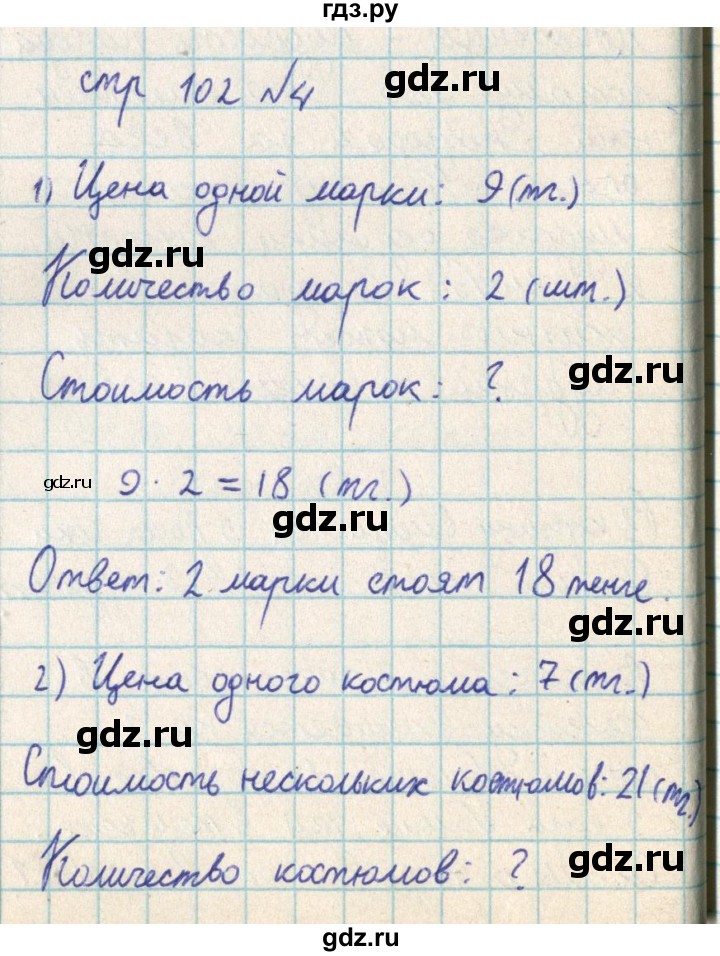 гдз.ру
стр 102 №4
gdz.ru
1) Цена одной марки: 9 (тг.)
gdz.ru
Количество марок: 2 (шт.)
Стоимость марок: ?
gdz.ru
gdz.ru
9 · 2 = 18 (тг.)
gdz.ru
Ответ: 2 марки стоят 18 тенге.
gdz.ru
2) Цена одного костюма: 7 (тг.)
gdz.ru
Стоимость нескольких костюмов: 21 (тг.)
Количество костюмов: ?
gdz.ru
gdz.ru